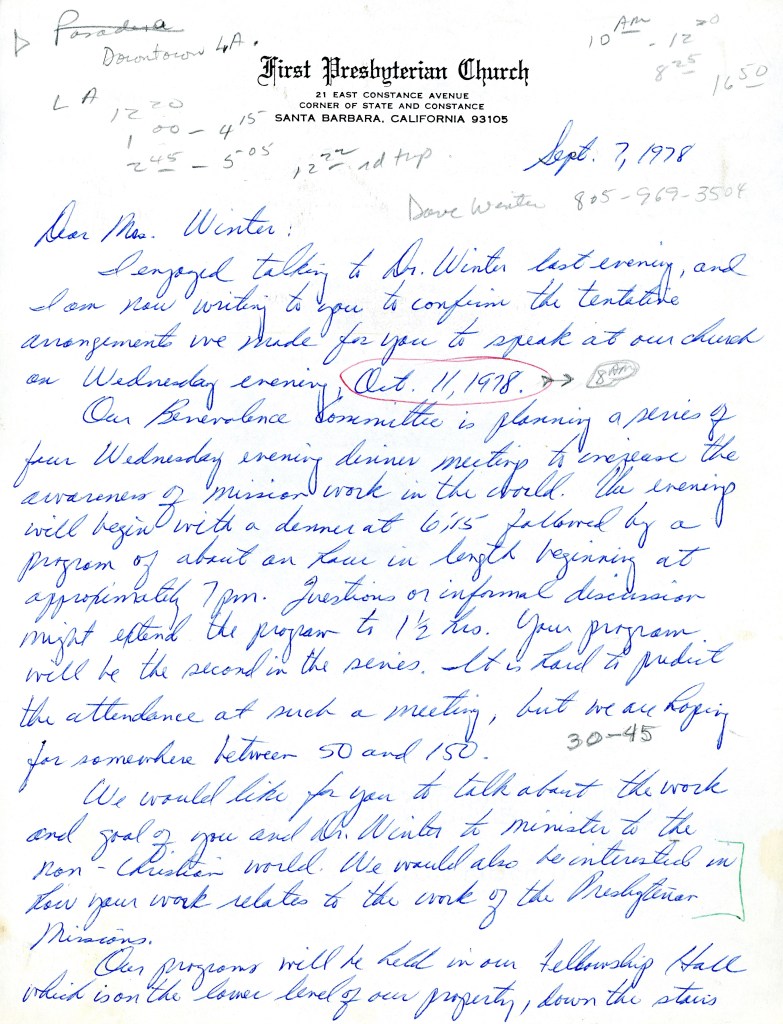 Pasadena
Downtown LA.
10 AM - 12 20
8 25
16 50
First Presbyterian Church
21 EAST CONSTANCE AVENUE
CORNER OF STATE AND CONSTANCE
SANTA BARBARA, CALIFORNIA 93105
LA
12 20
1 00 - 4 15
2 45 - 5 05
12 22 rd trip.
Sept. 7, 1978
Dave Winter 805-969-3504
Dear Mrs. Winter:
I enjoyed talking to Dr. Winter last evening, and
I am now writing to you to confirm the tentative
arrangements we made for you to speak at our church
on Wednesday evening, Oct. 11, 1978. 8 AM
Our Benevolence Committee is planning a series of
four Wednesday evening dinner meeting to increase the
awareness of mission work in the world. The evening
will begin with a dinner at 6:15 followed by a
program of about an hour in length beginning at
approximately 7 pm. Questions or informal discussion
might extend the program to 1½ hrs. Your program
will be the second in the series. It is hard to predict
the attendance at such a meeting, but we are hoping
for somewhere between 50 and 150. 30-45
We would like for you to talk about the work
and goal of you and Dr. Winter to minister to the
non-Christian world. We would also be interested in
how your work relates to the work of the Presbyterian
Missions.
Our programs will be held in our Fellowship Hall
which is on the lower level of our property, down the stairs